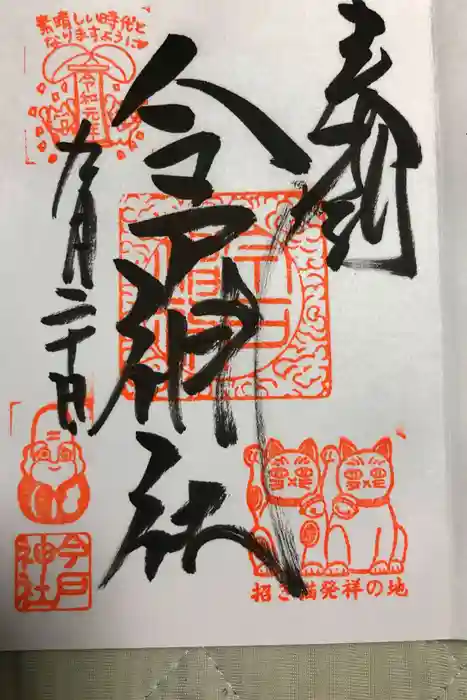 奉拝
今戸神社
九月二十日
素晴しい時代と
なりますように
令和元年
今戸
神社
招き猫発祥の地